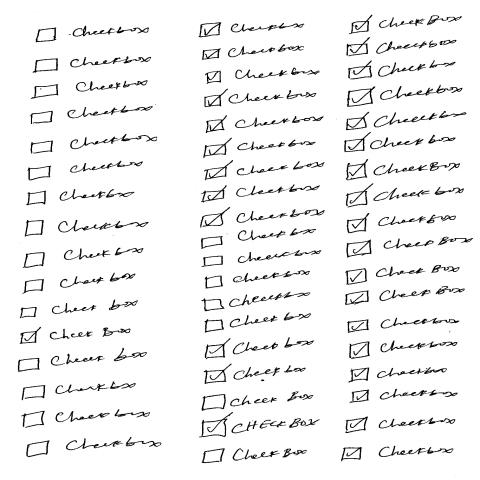 ☐ Checkbox
☐ Checkbox
☐ Checkbox
☐ Checkbox
☐ Checkbox
☐ Checkbox
☐ Checkbox
☐ Checkbox
☐ Check box
☐ Check box
☐ Check box
☑ Check Box
☐ Check box
☐ Checkbox
☐ Checkbox
☐ Checkbox
☑ Checkbox
☑ Checkbox
☑ Check box
☑ Checkbox
☑ Checkbox
☑ Check box
☑ Check box
☑ Check box
☑ Checkbox
☐ Check box
☐ Checkbox
☐ Check box
☐ Checkbox
☐ Check box
☑ Check box
☑ Check box
☐ Check Box
☑ CHECKBOX
☐ Check Box
☑ Check Box
☑ Checkbox
☑ Check box
☑ Checkbox
☑ Checkbox
☑ Check box
☑ CheckBox
☑ Check box
☑ CheckBox
☑ Check Box
☑ Check Box
☑ Check Box
☑ Checkbox
☑ Checkbox
☑ Checkbox
☑ Checkbox
☑ Checkbox
☑ Checkbox